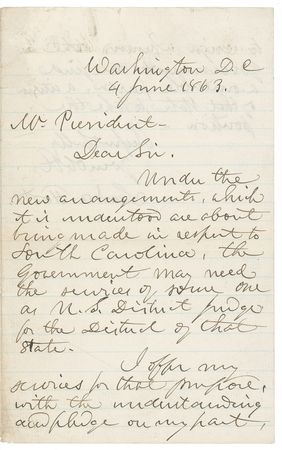 Washington D C
4 June 1863.
Mr President-
Dear Sir.
Under the
new arrangements, which
it is understood are about
being made in respect to
South Carolina, the
Government may need
the services of some one
as U. S. District judge
for the District of that
State.
I offer my
services for that purpose,
with the understanding
and pledge on my part,